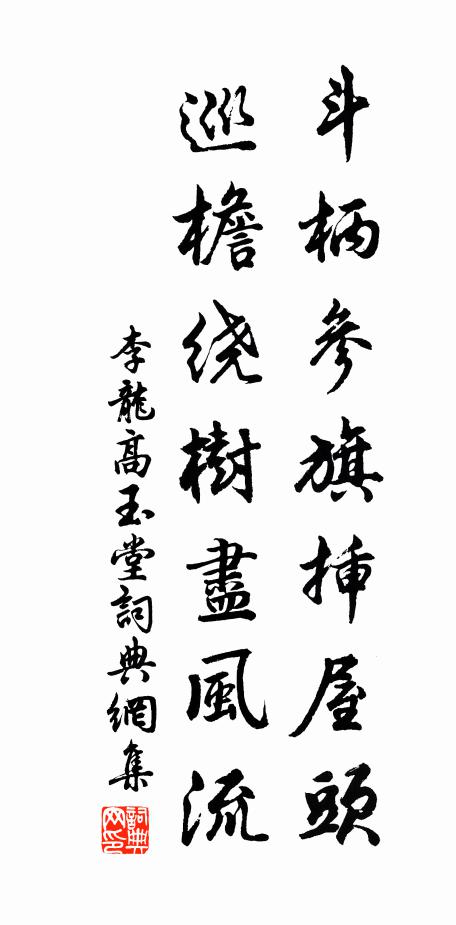 斗柄參旗插屋頭
巡檐绕樹盡風流
李龍高玉堂詞典網集
詞典网印